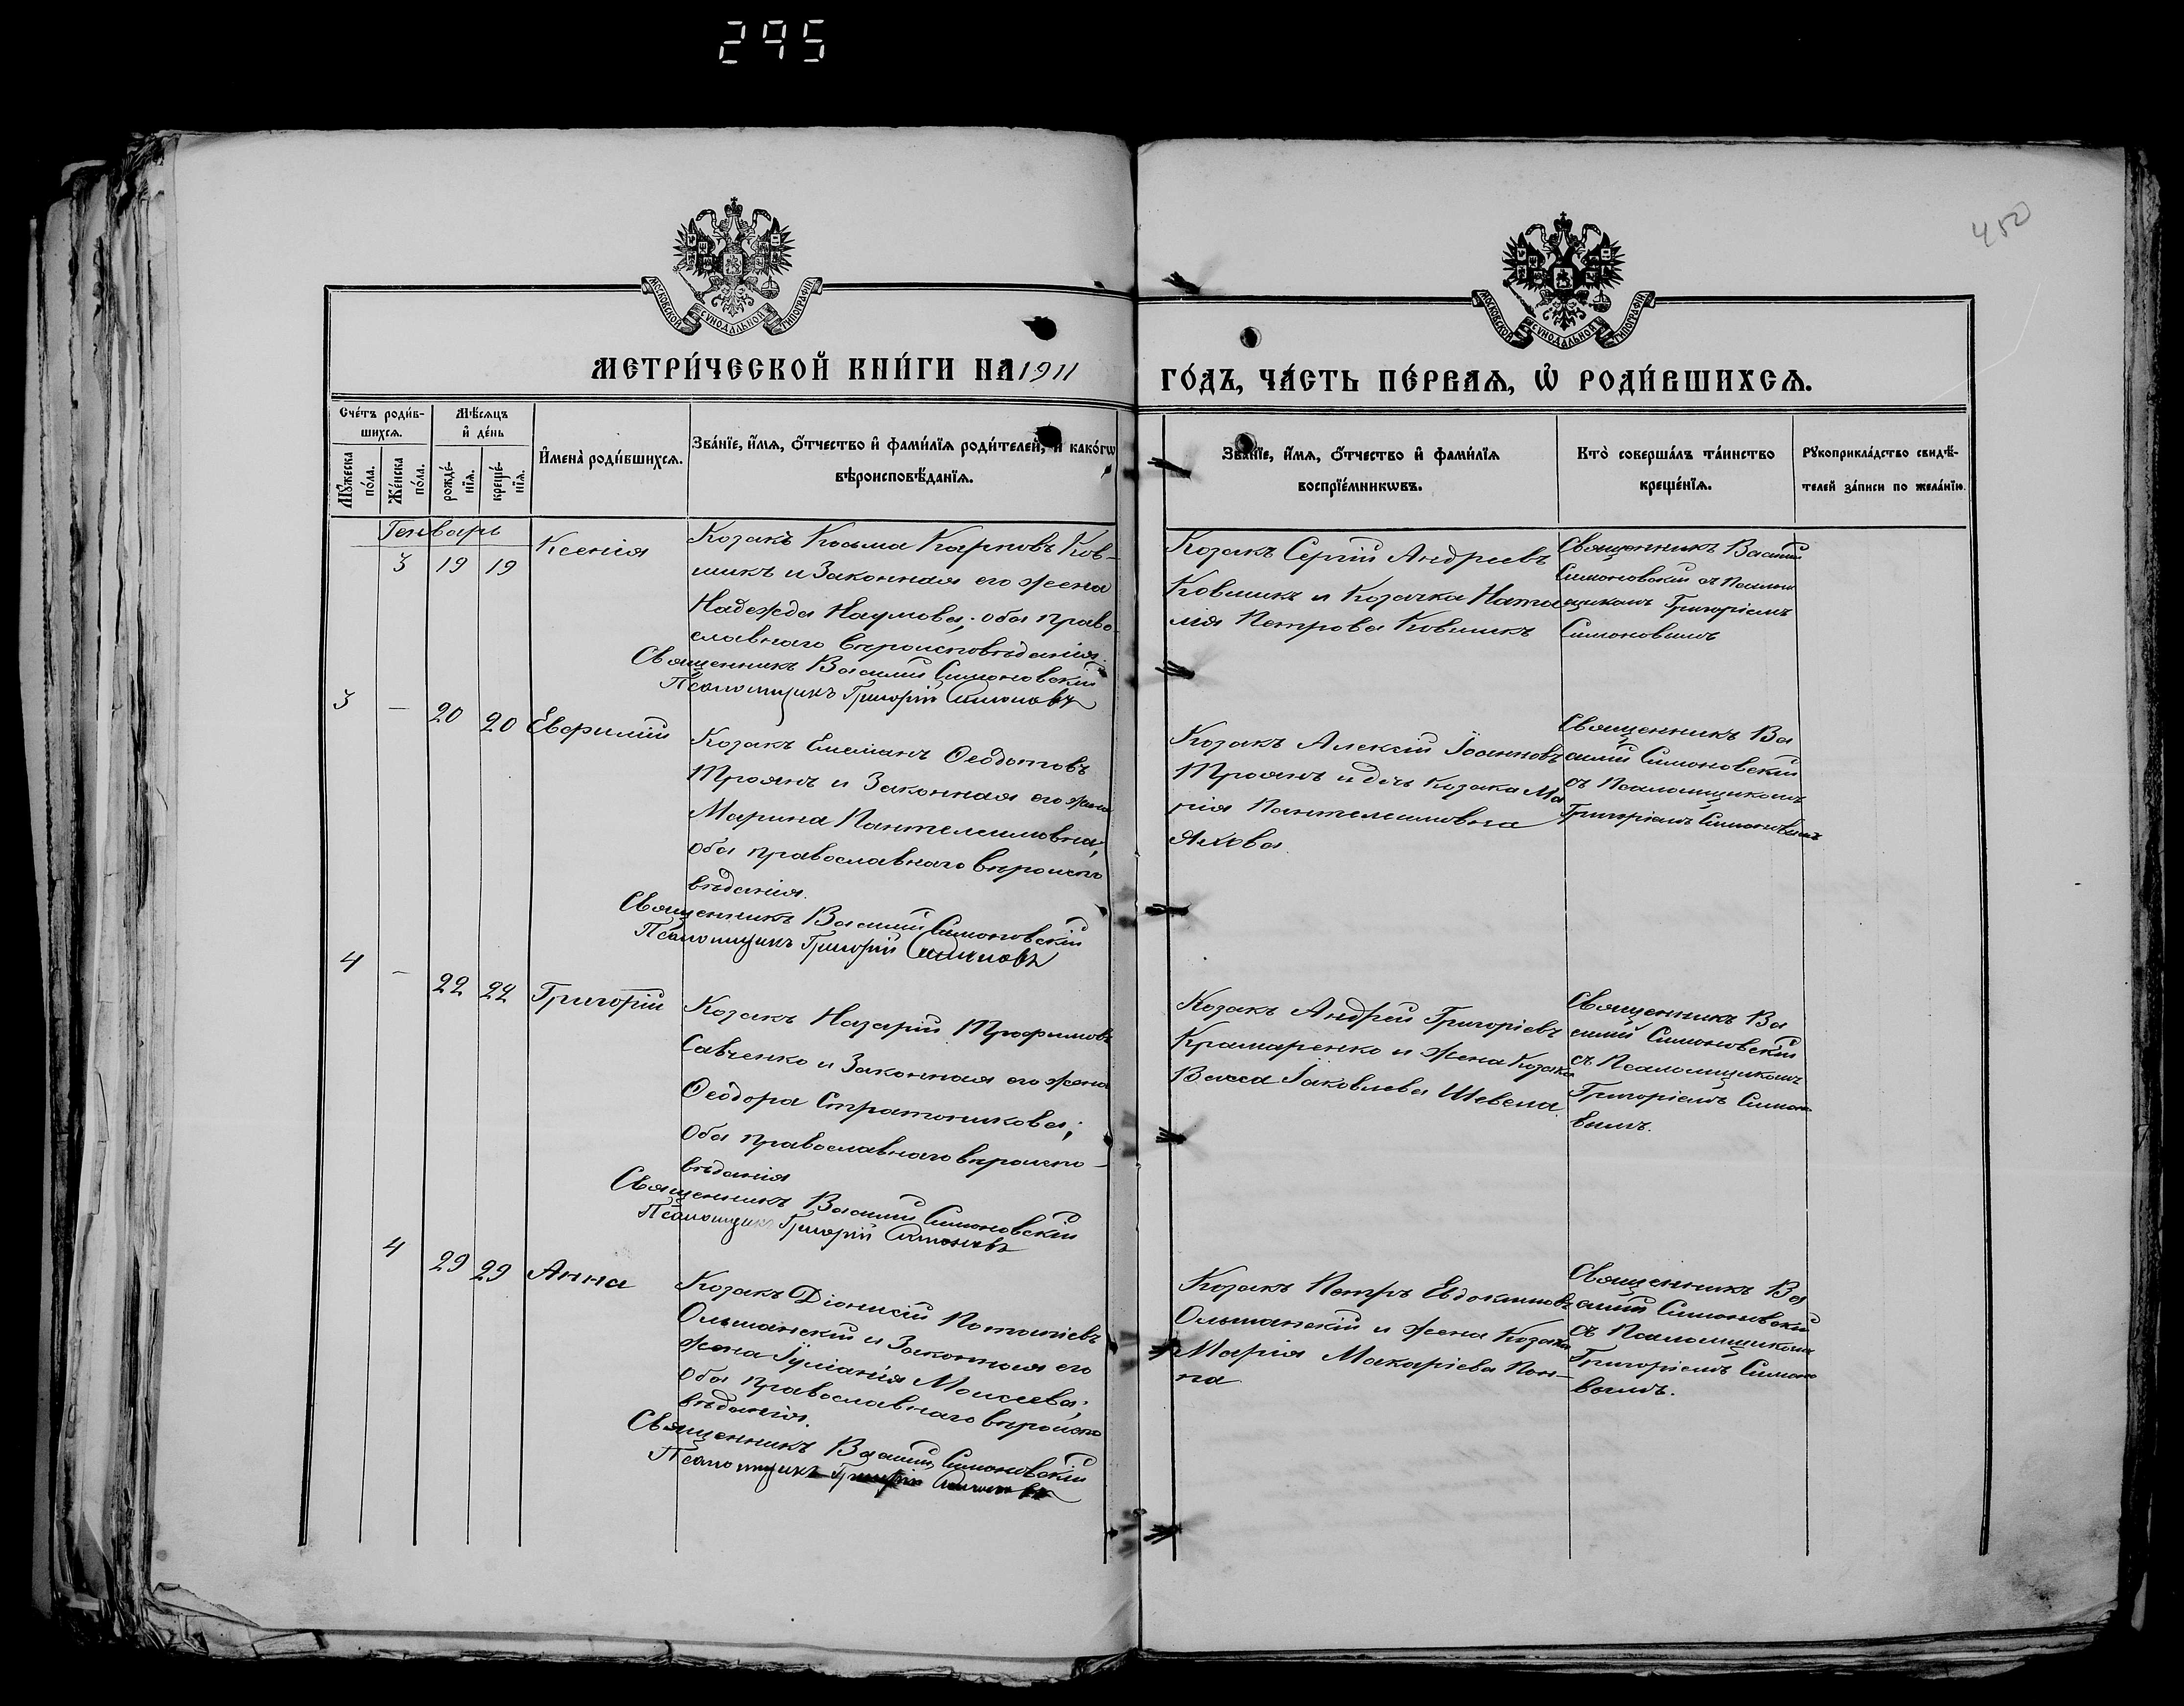 295
450
МОСКОВСКОЙ СѴНОДАЛЬНОЙ ТИПОГРАФІИ
МОСКОВСКОЙ СѴНОДАЛЬНОЙ ТИПОГРАФІИ
МЕТРИ́ЧЕСКОЙ КНИ́ГИ НА 1911
ГО́ДЪ, ЧА́СТЬ ПЕ́РВАѦ, Ѡ҆ РОДИ́ВШИХСѦ.
Сче́тъ роди́в-
шихсѧ.
Мꙋ́жеска по́ла.
Же́нска по́ла.
Мѣ́сѧцъ
и҆ де́нь
рожде́-
нїѧ.
креще́-
нїѧ.
И҆мена̀ роди́вшихсѧ.
Зва́нїе, и҆́мѧ, ѻ҆́тчество и҆ фами́лїѧ роди́телей, и҆ како́гѡ
вѣроисповѣ́данїѧ.
Зва́нїе, и҆́мѧ, ѻ҆́тчество и҆ фами́лїѧ
воспрїе́мникѡвъ.
Кто̀ соверша́лъ та́инство
креще́нїѧ.
Рꙋкоприкла́дство свидѣ́-
телей за́писи по жела́нїю.
Генварь
3 19 19 Ксенія
Козакъ Косьма Карповъ Ков-
шикъ и Законная его жена
Надежда Наумова; оба право-
славнаго вѣроисповѣданія.
Священникъ Василій Симоновскій
Псаломщикъ Григорій Симоновъ
Козакъ Сергій Андреевъ
Ковшикъ и Козачка Ната
лія Петрова Ковшикъ
Священникъ Василій
Симоновскій съ Псалом
щикомъ Григоріемъ
Симоновымъ
3 — 20 20 Евфимій
Козакъ Емеліанъ Ѳеодотовъ
Троянъ и Законная его жена
Марина Пантелеимовна;
оба православнаго вѣроиспо
вѣданія.
Священникъ Василій Симоновскій
Псаломщикъ Григорій Симоновъ
Козакъ Алексій Іоанновъ
Троянъ и дочь козака Ма
рія Пантелеимовна
Яхова.
Священникъ Ва
силій Симоновскій
съ Псаломщикомъ
Григоріемъ Симоновымъ
4 — 22 22 Григорій
Козакъ Назарій Трофимовъ
Савченко и Законная его жена
Ѳеодора Стратоникова;
Оба православнаго вѣроиспо-
вѣданія
Священникъ Василій Симоновскій
Псаломщикъ Григорій Симоновъ
Козакъ Андрей Григоріевъ
Крамаренко и жена Козака
Васса Іаковлева Шевела.
Священникъ Ва
силій Симоновскій
съ Псаломщикомъ
Григоріемъ Симоно
вымъ.
4 29 29 Анна
Козакъ Діонисій Потапіевъ
Ольшанскій и Законная его
жена Іуліанія Моисеева;
Оба православнаго вѣроиспо
вѣданія.
Священникъ Василій Симоновскій
Псаломщикъ Григорій Симоновъ
Козакъ Петръ Евдокимовъ
Ольшанскій и жена Козака
Марія Макаріева Поп-
па
Священникъ Ва
силій Симоновскій
съ Псаломщикомъ
Григоріемъ Симоно
вымъ.